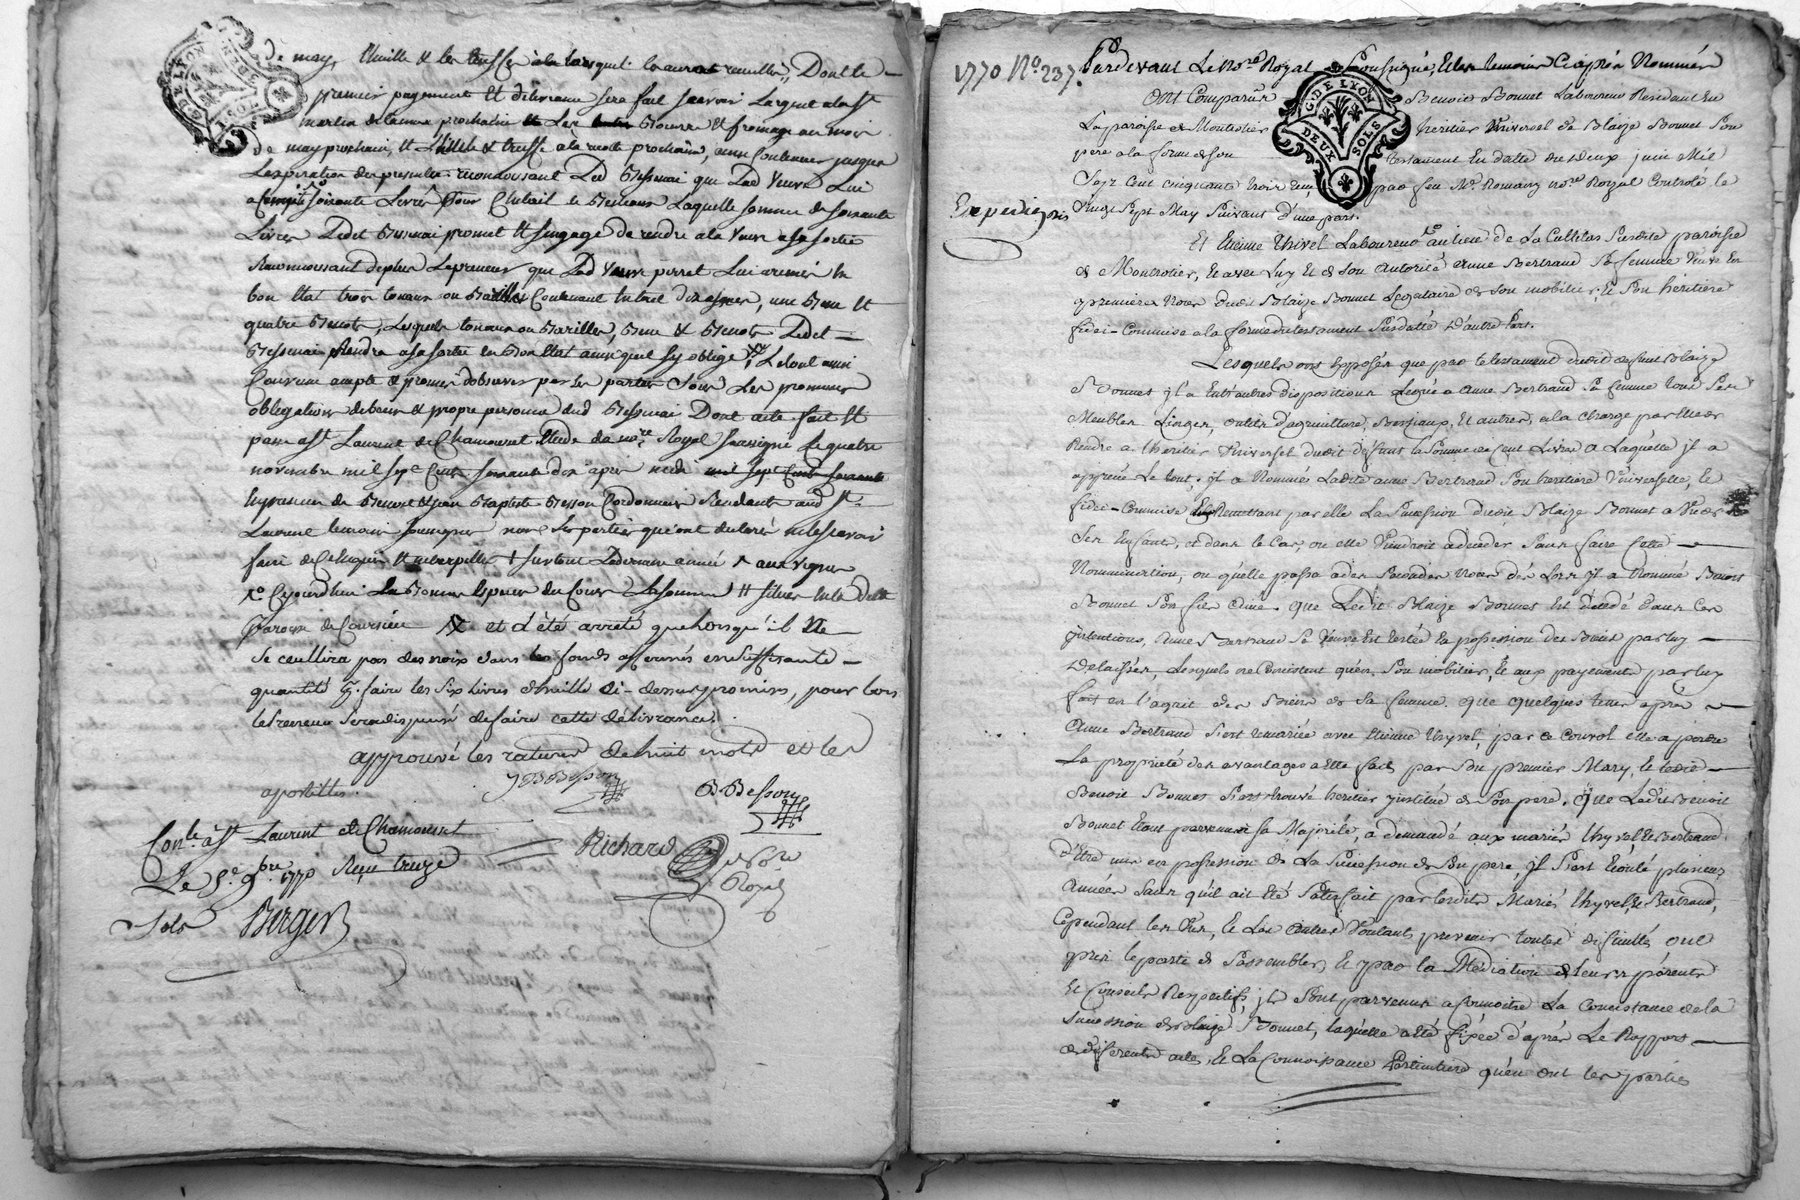 de may, l'huille & les
premier payement et délivrance sera fait sçavoir l'argent a la st
martin de la meme prochaine et Les Beurre et fromage au mois
de may prochain, et L'huille & truffe a la recolte prochaine, ainsi Continuer jusqua
Lexpiration du present reconnoissant Led Bessenai que Lad Veuve Lui
soixante Livres Pour Cheptail de Bestiaux Laquelle somme de soixante
Livres Ledit Bessenai promet et s'engage de rendre a la Veuve a sa sortie
Reconnoissant de plus Le preneur que Lad Veuve
bon Etat trois tonaux ou Barilles Contenant
quatre Benots, Lesquels tonaux ou Barilles, Bene & Benots Ledet
Bessenai Rendra a sa sortie en Bon Etat ainsi quil sy oblige, Le tout ainsi
Convenu accepté & promis d'observer par les parties Sous Les promisses
obligations de biens & propre personne dud Bessenai Dont acte fait et
passé a St Laurent de Chamousset Etude du nore Royal soussigne Le quatre
novembre mil sept Cent soixante dix après midi mil sept Cent soixante
en presence de Benoit & Jean Baptiste Besson Cordonniers Residants aud St
Laurent temoins soussignes non Les parties qui ont declaré ne le scavoir
faire de Ce Enquis et interpellés + surtout La derniere année
Cejourd'hui
Paroisse de Coursieu et d'été arrêté que Lorsqu'il Ne
se ceuillira pas des noix dans les fonds affermés en suffisante
quantité pr. faire les six livres d'huille ci-dessus promises, pour lors
le Preneur sera dispensé de faire cette délivrance.
approuvé les ratures de huit mots et les
apostilles. JB Besson B Besson
Conlé à St Laurent de Chamousset
Le 5e 9bre 1770 Reçu treize
Sols Berger
Richard
nore
Royal
G. DE LYON
DEUX SOLS
1770 No. 237.
Pardevant Le Nore Royal Soussigné, Et les temoins Ci après Nommés
Ont Comparûs Benoit Bonnet Laboureur Residant En
La paroisse de Montrotier heritier Universel de Blaize Bonnet Son
pere a la forme de son testament En datte du deux juin Mil
Sept Cent cinquante trois reçu par feu Me. Romany nore Royal Controlé le
Vingt Sept May Suivant d'une part.
Expedié
Et Etienne Thivel Laboureur au lieu de La Cullitas Susdite paroisse
de Montrotier, Et avec Luy Et de son Autorité Anne Bertrand Sa femme Veuve En
premieres Noces dudit Blaize Bonnet Legataire de son mobilier, & Son heritiere
fidei-Commise a la forme du testament Susdatté d'autre Part.
Lesquels ont Exposés que par le testament dudit defunt Blaize
Bonnet il a Entr'autres dispositions Legué a Anne Bertrand Sa femme tous Ses
Meubles Linges, outils d'agriculture, Bestiaux, Et autres, a la charge par Elle de
Rendre a l'heritier Universel dudit deffunt la Somme de Cent Livres a Laquelle il a
apprecié Le tout, il a Nommée Ladite Anne Bertrand Son heritiere Universelle, le
fidei-Commise En Remettant par elle La Succession dudit Blaize Bonnet a Un de
Ses Enfants, et dans le Cas, ou elle Viendroit a deceder Sans faire Cette
Nommination, ou qu'elle passa a des Secondes Noces dès Lors il a Nommé Benoit
Bonnet Son fils Ainé. Que Ledit Blaize Bonnet Est décedé dans Ces
intentions, Anne Bertrand Sa Veuve Est Restée En possession des Biens par luy
Delaissés, Lesquels ne Consistent qu'en Son mobilier, & aux payements par luy
fait en l'aquit des Biens de Sa femme. Que quelques tems après
Anne Bertrand S'est remariée avec Etienne Thyvel, par ce Convol elle a perdu
La propriété des avantages a Elle faits par Son premier Mary, & ledit
Benoit Bonnet S'est trouvé heritier institué de Son pere. Que Ledit Benoit
Bonnet Etant parvenu à sa Majorité, a demandé aux mariés Thyvel & Bertrand
d'Etre mis en possession de La Succession de Son pere, il S'est Ecoulé plusieurs
Années Sans qu'il ait été Satisfait par lesdits Mariés Thyvel, & Bertrand,
Cependant Les Uns, & Les Autres Voulant prevenir toutes dificultés ont
pris le parti de S'assembler, & par la Médiation de leurs parents
Et Conseils Respectifs, ils Sont parvenus a Connoitre La Consistance de la
Succession de Blaize Bonnet, laquelle a été fixée d'après Le Rapport
de diferents actes, Et La Connoissance Particuliere qu'en ont les parties